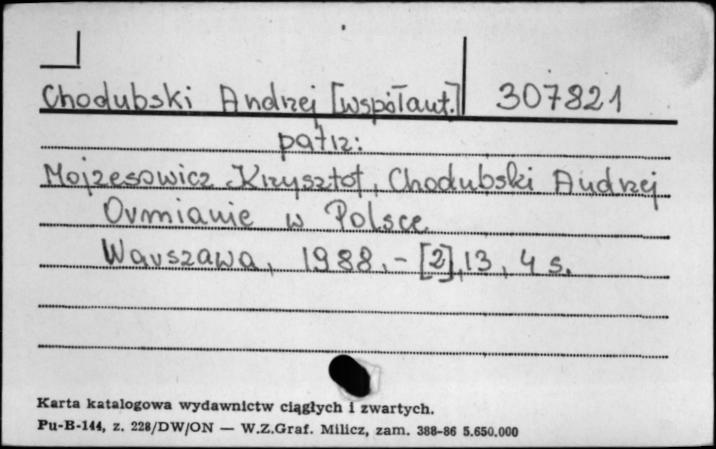 Chodubski Andrzej [współaut.] 307821
patrz:
Mojzesowicz Krzysztof, Chodubski Andrzej
Ormianie w Polsce
Warszawa, 1988. - [2], 13, 4 s.
Karta katalogowa wydawnictw ciągłych i zwartych.
Pu-B-144, z. 228/DW/ON — W.Z.Graf. Milicz, zam. 388-86 5.650.000